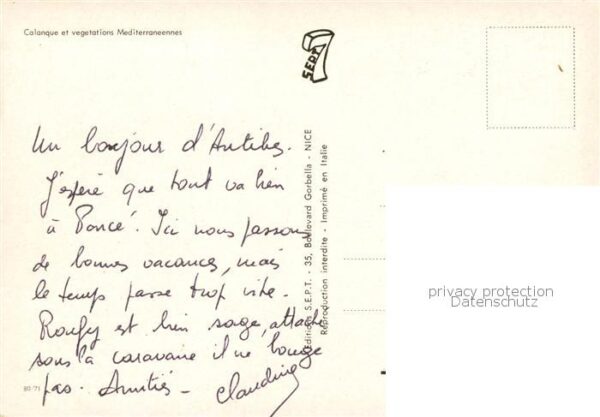 Calanque et vegetations Mediterraneennes
SEPT
Un bonjour d'Antibes.
J'espère que tout va bien
à Poncé. Ici nous passons
de bonnes vacances, mais
le temps passe trop vite.
Roufy est bien sage, attaché
sous la caravane il ne bouge
pas. Amitiés - Claudine
80-71
Edition S.E.P.T. - 35, Boulevard Gorbella - NICE
Reproduction interdite - Imprimé en Italie
privacy protection
Datenschutz